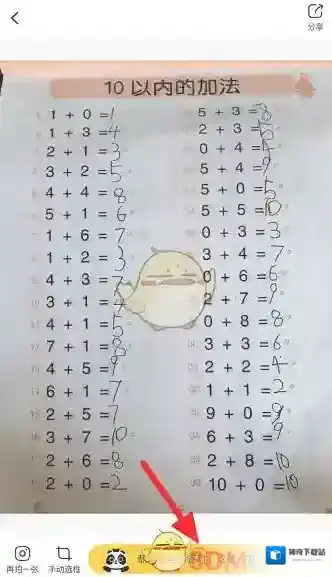 分享
10 以内的加法
1 + 0 = 1
1 + 3 = 4
2 + 1 = 3
3 + 2 = 5
4 + 4 = 8
5 + 1 = 6
1 + 6 = 7
1 + 2 = 3
4 + 3 = 7
3 + 1 = 4
4 + 1 = 5
7 + 1 = 8
4 + 5 = 9
6 + 1 = 7
2 + 5 = 7
3 + 7 = 10
2 + 6 = 8
2 + 0 = 2
5 + 3 = 8
2 + 3 = 5
0 + 4 =
5 + 4 = 9
5 + 0 = 5
5 + 5 = 10
0 + 3 = 3
3 + 4 = 7
0 + 6 = 6
2 + 7 = 9
0 + 8 = 8
3 + 3 = 6
2 + 2 = 4
1 + 1 = 2
9 + 0 = 9
6 + 3 = 9
2 + 8 = 10
10 + 0 = 10
再拍一张
手动选框
神奇下载站